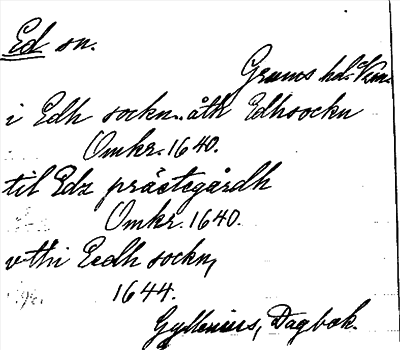 Ed sn.
Grums hd. Vrm.
i Edh sockn.. åth Edhsockn
Omkr. 1640.
til Edz prästegårdh
Omkr. 1640.
vthi Eedh sockn,
1644.
Gyllenius, Dagbok.